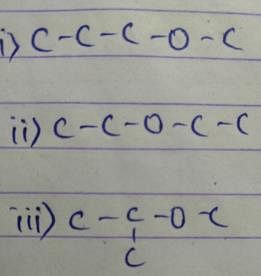 i) C-C-C-O-C
ii) C-C-O-C-C
iii) C-C-O-C
|
C